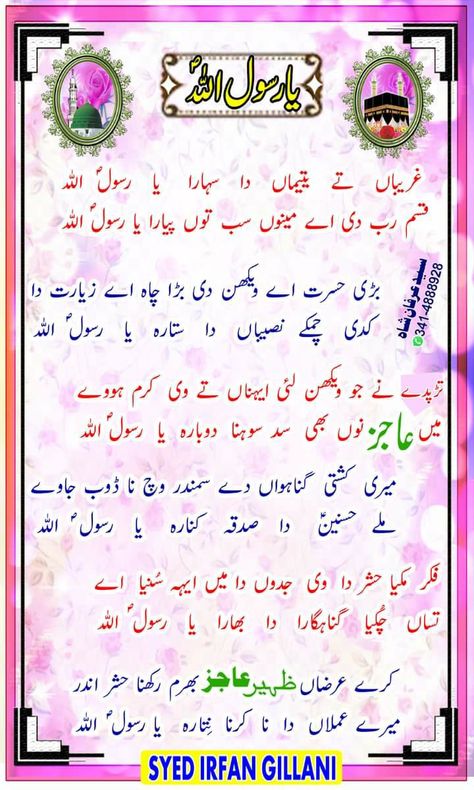 یا رسول اللہ ﷺ
غریباں تے یتیماں دا سہارا یا رسولؐ اللہ
قسم رب دی اے مینوں سب توں پیارا یا رسولؐ اللہ
سید عرفان شاہ
341-4888928
بڑی حسرت اے ویکھن دی بڑا چاہ اے زیارت دا
کدی چمکے نصیباں دا ستارہ یا رسولؐ اللہ
تڑپدے نے جو ویکھن لئی ایہناں تے وی کرم ہووے
میں عاجز نوں بھی سد سوہنا دوبارہ یا رسولؐ اللہ
میری کشتی گناہواں دے سمندر وچ نا ڈوب جاوے
ملے حسنینؑ دا صدقہ کنارہ یا رسولؐ اللہ
فکر مکیا حشر دا وی جدوں دا میں ایہہ سُنیا اے
تساں چُکیا گناہگارا دا بھارا یا رسولؐ اللہ
کرے عرضاں ظہیر عاجز بھرم رکھنا حشر اندر
میرے عملاں دا نا کرنا نِتارہ یا رسولؐ اللہ
SYED IRFAN GILLANI